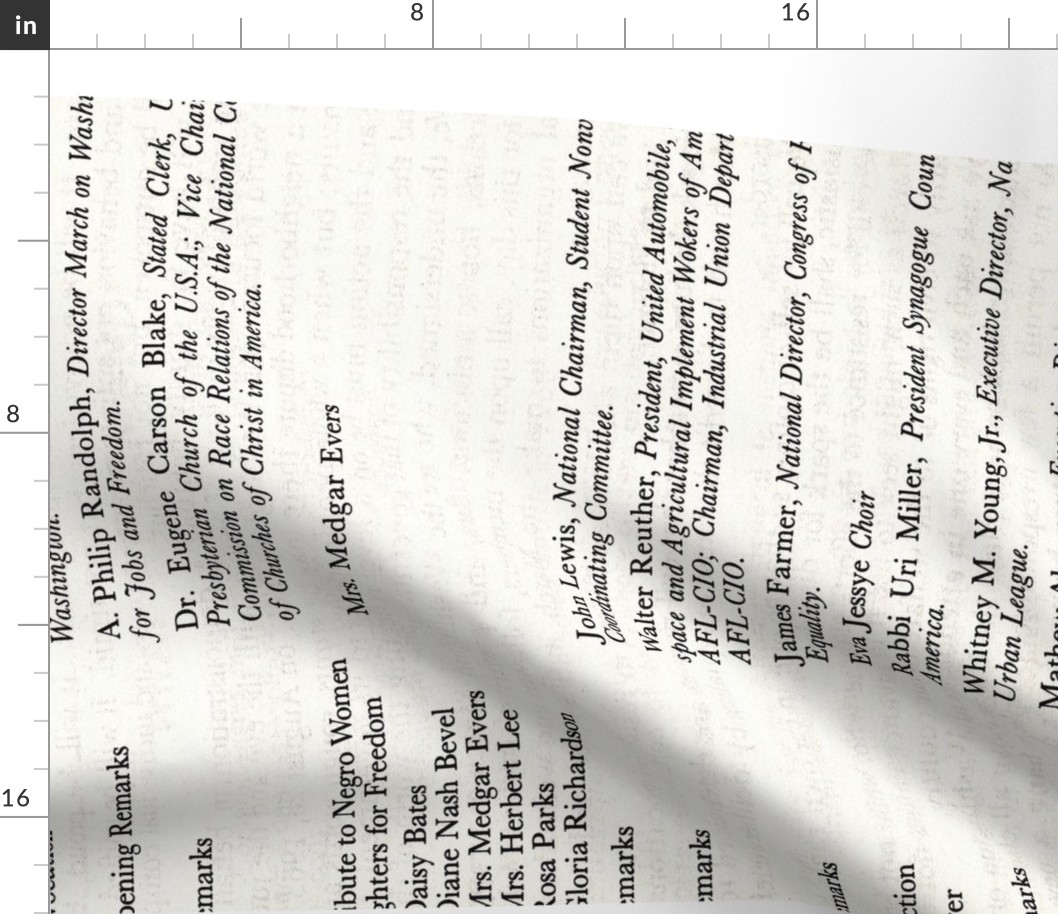 in
8
16
8
16
Washington.
pening Remarks
A. Philip Randolph, Director March on Washi
for Jobs and Freedom.
emarks
Dr. Eugene Carson Blake, Stated Clerk, U
Presbyterian Church of the U.S.A.; Vice Chai
Commission on Race Relations of the National C
of Churches of Christ in America.
ibute to Negro Women
ghters for Freedom
Mrs. Medgar Evers
Daisy Bates
Diane Nash Bevel
Mrs. Medgar Evers
Mrs. Herbert Lee
Rosa Parks
Gloria Richardson
emarks
John Lewis, National Chairman, Student Nonv
Coordinating Committee.
emarks
Walter Reuther, President, United Automobile,
space and Agricultural Implement Wokers of Am
AFL-CIO; Chairman, Industrial Union Depart
AFL-CIO.
marks
James Farmer, National Director, Congress of
Equality.
ction
Eva Jessye Choir
er
Rabbi Uri Miller, President Synagogue Coun
America.
arks
Whitney M. Young, Jr., Executive Director, Na
Urban League.